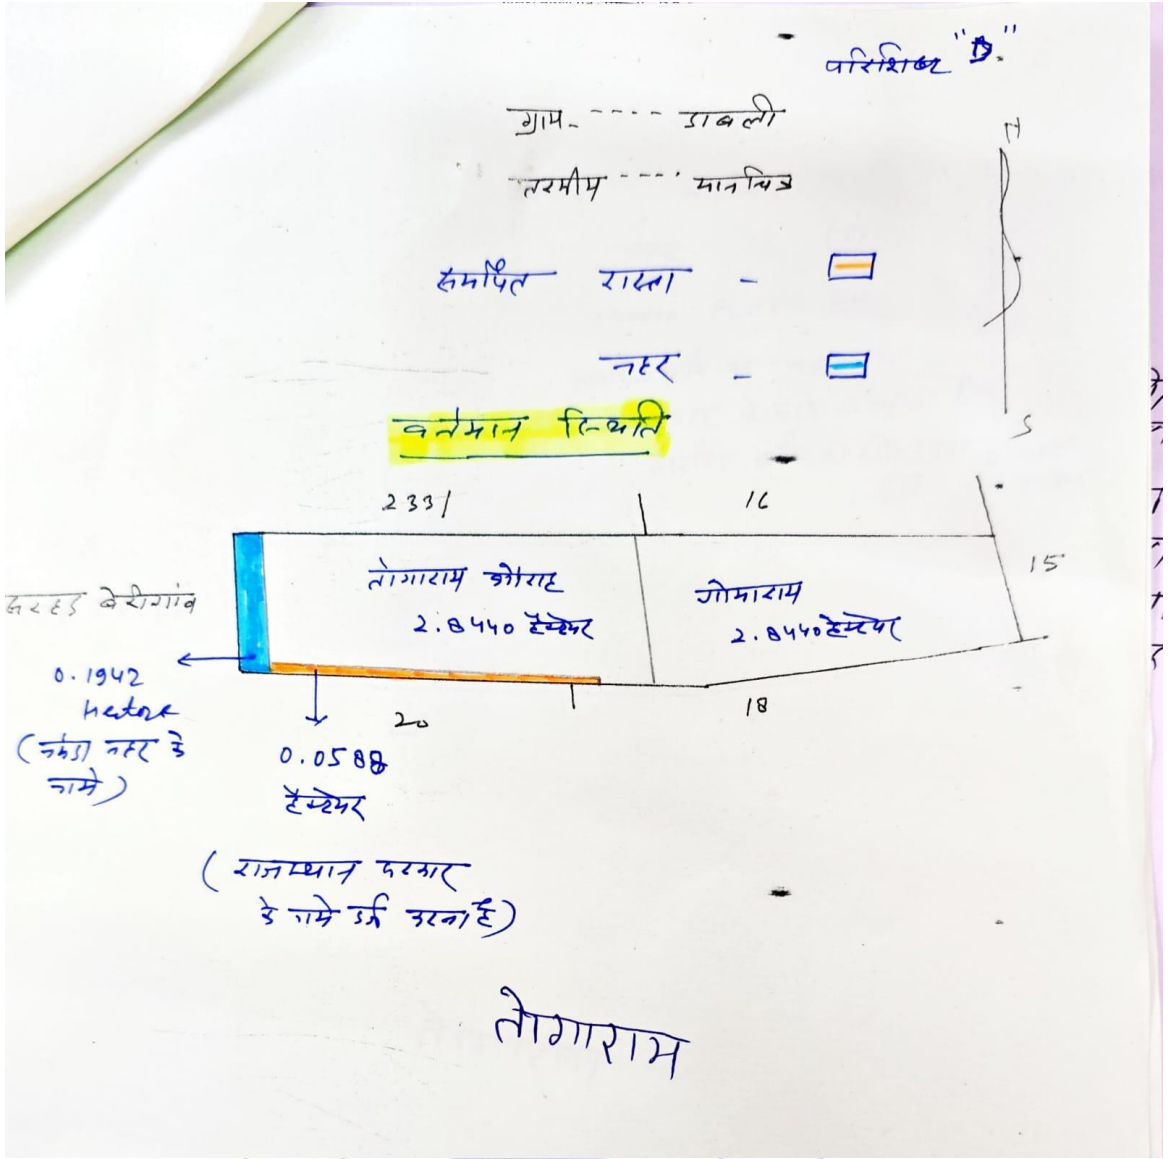 परिशिष्ट "D."
ग्राम- ---- डाबली
तरमीम ---- मानचित्र
N
समर्पित रास्ता -
नहर -
S
वर्तमान स्थिति
233/ 16
15
तोगाराम वगैराह
2.8440 हैक्टेयर
गोमाराम
2.8440 हैक्टेयर
सरहद बेरीगांव
0.1942
Hectare
(नर्मदा नहर के
नामे)
20
18
0.0588
हैक्टेयर
(राजस्थान सरकार
के नामे दर्ज करना है)
तोगाराम